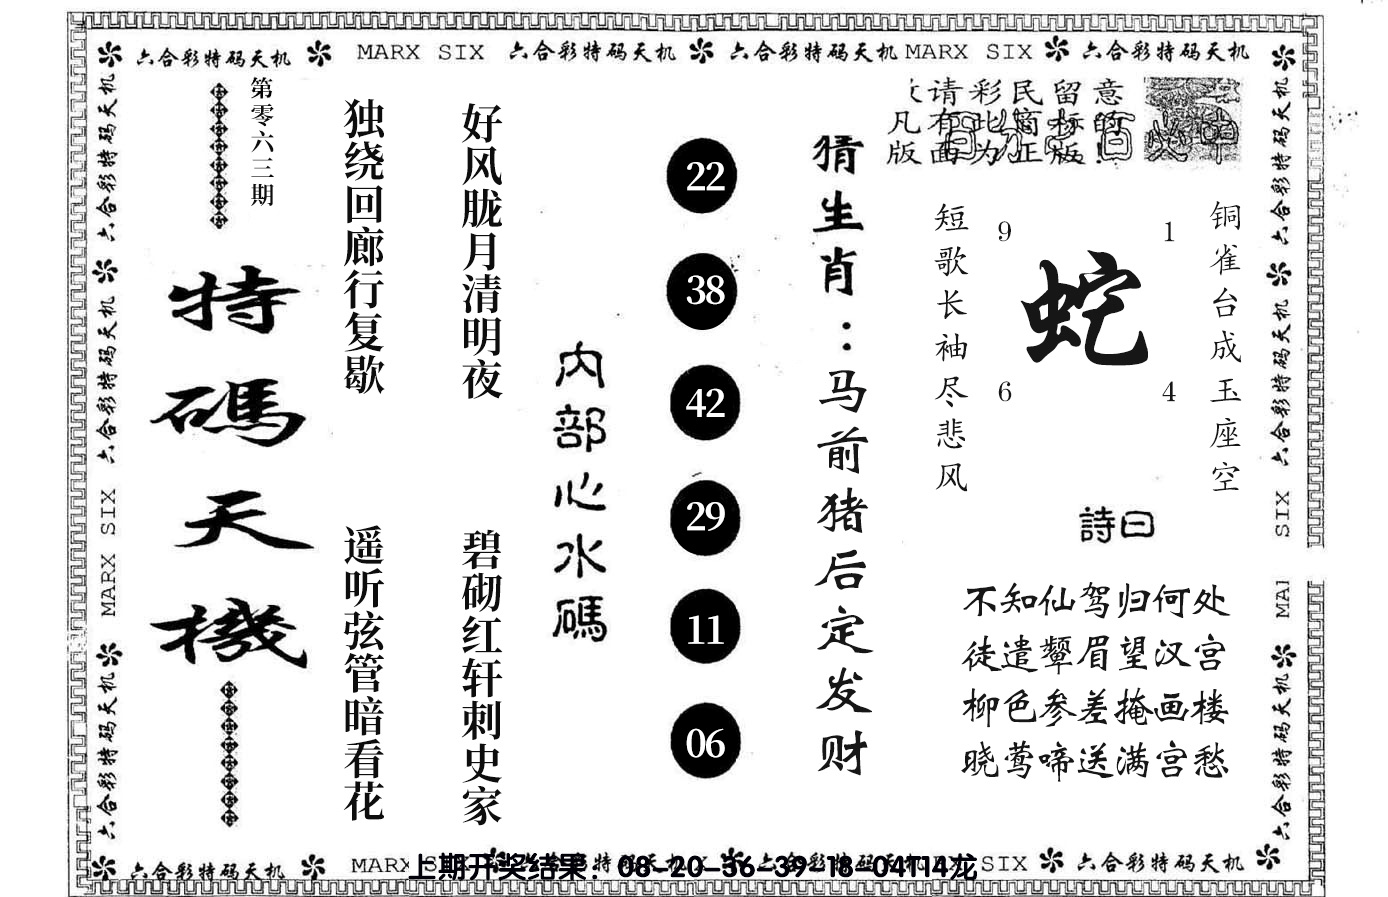 六合彩特码天机 MARX SIX 六合彩特码天机 六合彩特码天机 MARX SIX 六合彩特码天机
第零六三期
特碼天機
独绕回廊行复歇
遥听弦管暗看花
好风胧月清明夜
碧砌红轩刺史家
内部心水碼
22
38
42
29
11
06
猜生肖：马前猪后定发财
请彩民留意
凡有此商标的
版面为正版!
铜雀台成玉座空
短歌长袖尽悲风
9 1
蛇
6 4
詩曰
不知仙驾归何处
徒遣颦眉望汉宫
柳色参差掩画楼
晓莺啼送满宫愁
六合彩特码天机 六合彩特码天机 MARX SIX 六合彩特码天机
六合彩特码天机 六合彩特码天机 SIX MAR 六合彩特码天机
六合彩特码天机 MARX SIX 六合彩特码天机 SIX 六合彩特码天机
上期开奖结果：08-20-36-39-18-04T14龙